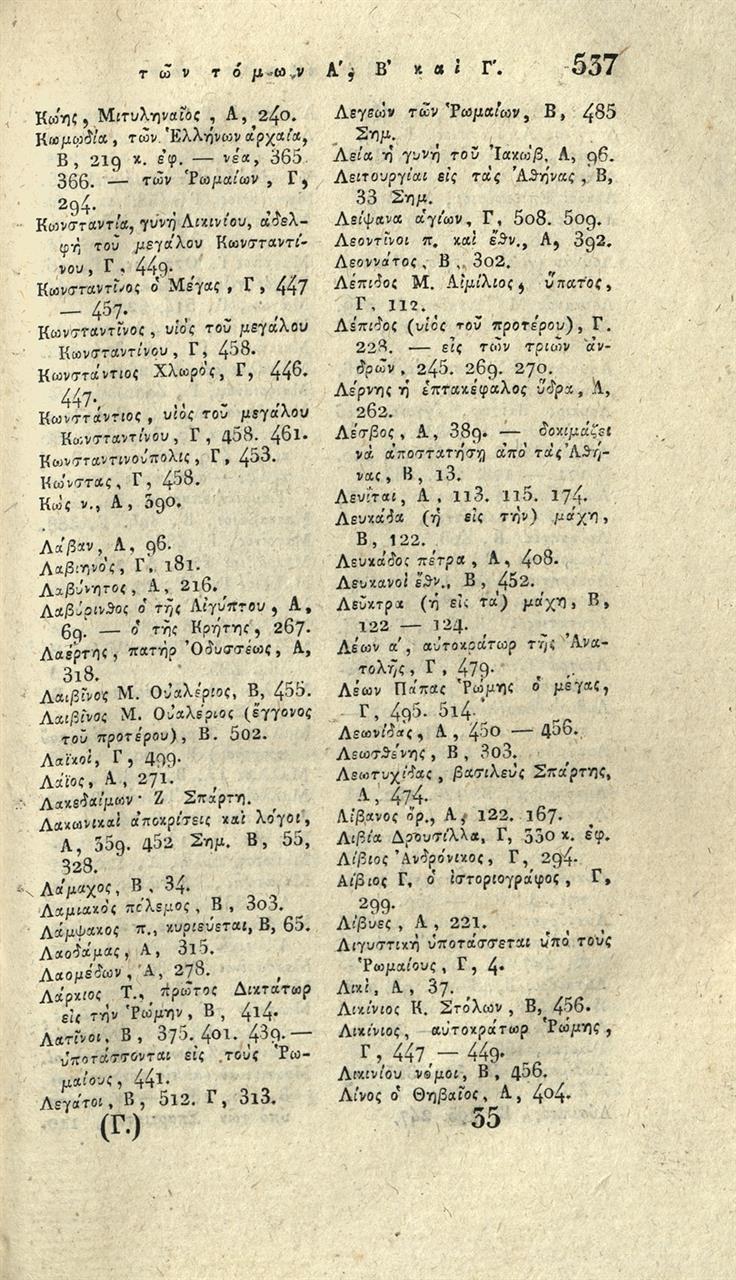 τῶν τόμων Α', Β' καὶ Γ'. 537
Κώης, Μιτυληναῖος, Α, 240.
Κωμῳδία, τῶν Ἑλλήνων ἀρχαία,
Β, 219 κ. ἐφ. — νέα, 365
366. — τῶν Ῥωμαίων, Γ,
294.
Κωνσταντία, γυνὴ Λικινίου, ἀδελ-
φὴ τοῦ μεγάλου Κωνσταντί-
νου, Γ, 449.
Κωνσταντῖνος ὁ Μέγας, Γ, 447
— 457.
Κωνσταντῖνος, υἱὸς τοῦ μεγάλου
Κωνσταντίνου, Γ, 458.
Κωνστάντιος Χλωρὸς, Γ, 446.
447.
Κωνστάντιος, υἱὸς τοῦ μεγάλου
Κωνσταντίνου, Γ, 458. 461.
Κωνσταντινούπολις, Γ, 453.
Κώνστας, Γ, 458.
Κὼς ν., Α, 390.
Λάβαν, Α, 96.
Λαβιηνὸς, Γ, 181.
Λαβύνητος, Α, 216.
Λαβύρινθος ὁ τῆς Αἰγύπτου, Α,
69. — ὁ τῆς Κρήτης, 267.
Λαέρτης, πατὴρ Ὀδυσσέως, Α,
318.
Λαιβῖνος Μ. Οὐαλέριος, Β, 455.
Λαιβῖνος Μ. Οὐαλέριος (ἔγγονος
τοῦ προτέρου), Β. 502.
Λαϊκοὶ, Γ, 499.
Λάϊος, Α, 271.
Λακεδαίμων· Ζ Σπάρτη.
Λακωνικαὶ ἀποκρίσεις καὶ λόγοι,
Α, 359. 452 Σημ. Β, 55,
328.
Λάμαχος, Β, 34.
Λαμιακὸς πόλεμος, Β, 303.
Λάμψακος π., κυριεύεται, Β, 65.
Λαοδάμας, Α, 315.
Λαομέδων, Α, 278.
Λάρκιος Τ., πρῶτος Δικτάτωρ
εἰς τὴν Ῥώμην, Β, 414.
Λατῖνοι, Β, 375. 401. 439. —
ὑποτάσσονται εἰς τοὺς Ῥω-
μαίους, 441.
Λεγάτοι, Β, 512. Γ, 313.
(Γ.)
Λεγεὼν τῶν Ῥωμαίων, Β, 485
Σημ.
Λεία ἡ γυνὴ τοῦ Ἰακὼβ, Α, 96.
Λειτουργίαι εἰς τὰς Ἀθήνας, Β,
33 Σημ.
Λείψανα ἁγίων, Γ, 508. 509.
Λεοντῖνοι π. καὶ ἔθν., Α, 392.
Λεοννάτος, Β, 302.
Λέπιδος Μ. Αἰμίλιος, ὕπατος,
Γ, 112.
Λέπιδος (υἱὸς τοῦ προτέρου), Γ.
228. — εἷς τῶν τριῶν ἀν-
δρῶν, 245. 269. 270.
Λέρνης ἡ ἑπτακέφαλος ὕδρα, Α,
262.
Λέσβος, Α, 389. — δοκιμάζει
νὰ ἀποστατήσῃ ἀπὸ τὰς Ἀθή-
νας, Β, 13.
Λευῖται, Α, 113. 115. 174.
Λευκάδα (ἡ εἰς τὴν) μάχη,
Β, 122.
Λευκάδος πέτρα, Α, 408.
Λευκανοὶ ἔθν., Β, 452.
Λεῦκτρα (ἡ εἰς τὰ) μάχη, Β,
122 — 124.
Λέων α', αὐτοκράτωρ τῆς Ἀνα-
τολῆς, Γ, 479.
Λέων Πάπας Ῥώμης ὁ μέγας,
Γ, 495. 514.
Λεωνίδας, Α, 450 — 456.
Λεωσθένης, Β, 303.
Λεωτυχίδας, βασιλεὺς Σπάρτης,
Α, 474.
Λίβανος ὄρ., Α, 122. 167.
Λιβία Δρουσίλλα, Γ, 330 κ. ἐφ.
Λίβιος Ἀνδρόνικος, Γ, 294.
Λίβιος Γ. ὁ ἱστοριογράφος, Γ,
299.
Λίβυες, Α, 221.
Λιγυστικὴ ὑποτάσσεται ὑπὸ τοὺς
Ῥωμαίους, Γ, 4.
Λικὶ, Α, 37.
Λικίνιος Κ. Στόλων, Β, 456.
Λικίνιος, αὐτοκράτωρ Ῥώμης,
Γ, 447 — 449.
Λικινίου νόμοι, Β, 456.
Λίνος ὁ Θηβαῖος, Α, 404.
35